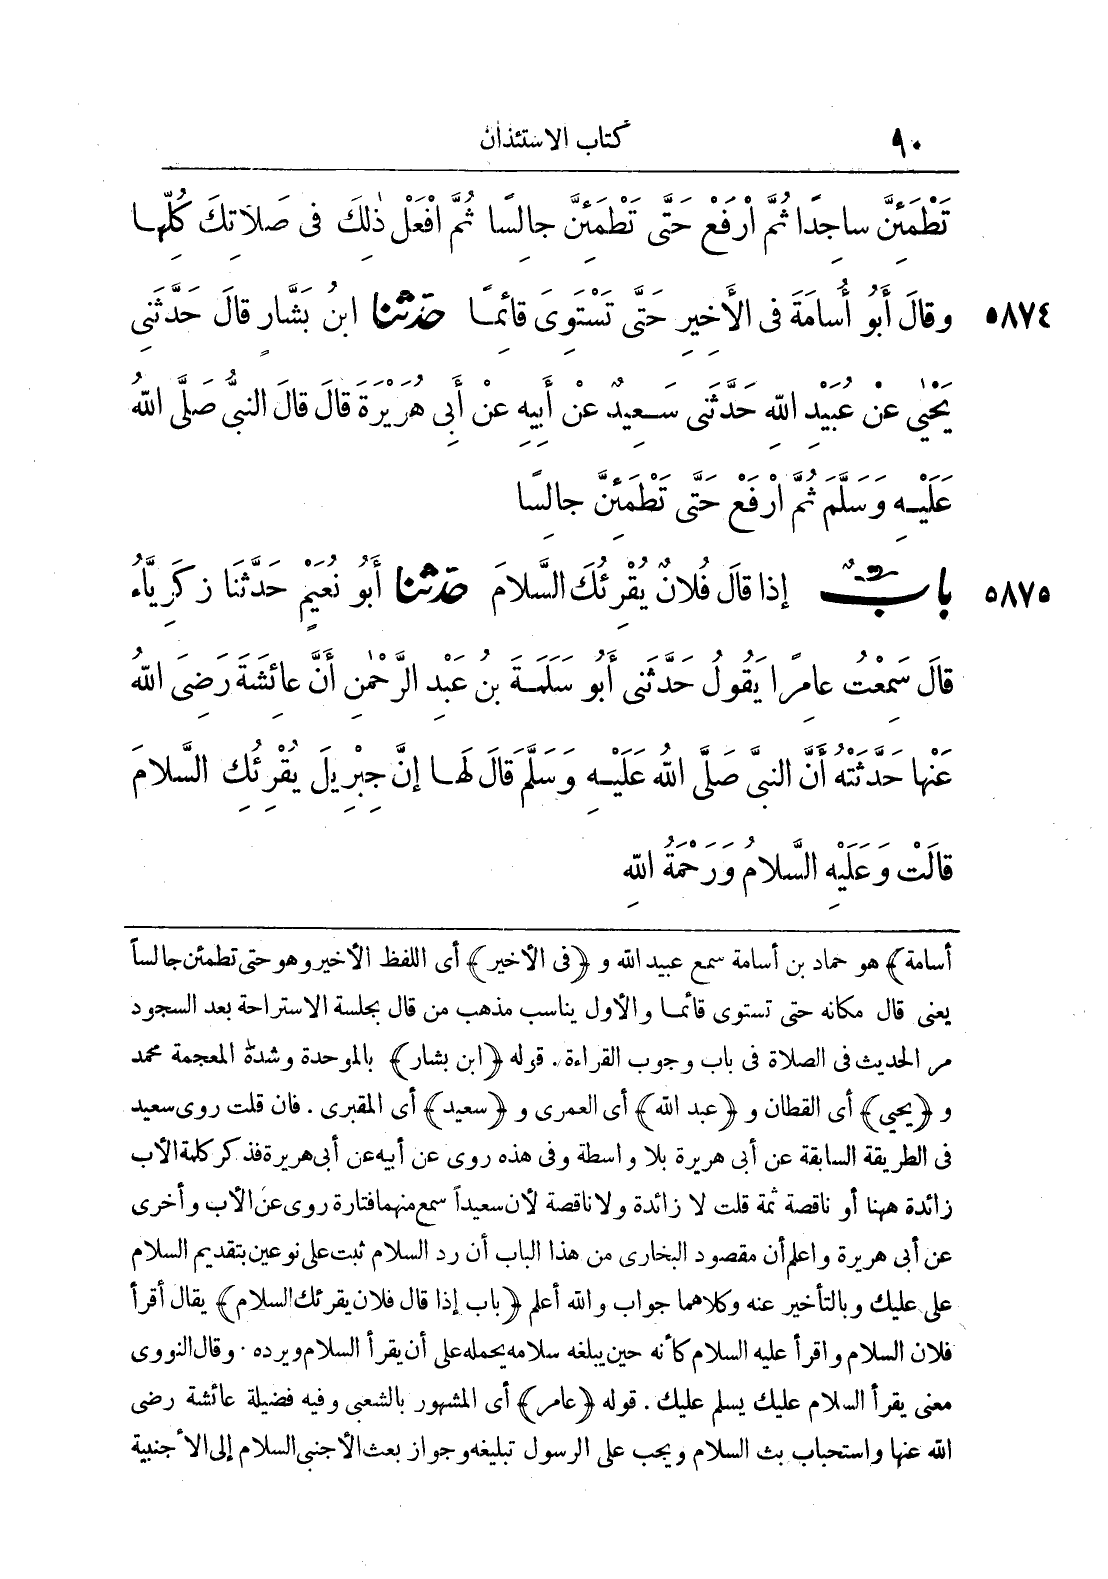 ٩٠ كتاب الاستئذان
تَطْمَئِنَّ ساجِدًا ثُمَّ ارْفَعْ حَتَّى تَطْمَئِنَّ جالِسًا ثُمَّ افْعَلْ ذٰلِكَ فى صَلاَتِكَ كُلِّها
٥٨٧٤ وقالَ أَبُو أُسامَةَ فى الأَخِيرِ حَتَّى تَسْتَوِىَ قائِمًا حدثنا ابنُ بَشَّارٍ قالَ حَدَّثَنِى
يَحْيٰى عنْ عُبَيْدِ اللهِ حَدَّثَنِى سَعِيدٌ عنْ أَبِيهِ عنْ أَبِى هُرَيْرَةَ قالَ قالَ النبىُّ صَلَّى اللهُ
عَلَيْهِ وَسَلَّمَ ثُمَّ ارْفَعْ حَتَّى تَطْمَئِنَّ جالِسًا
٥٨٧٥ بابٌ إذا قالَ فُلانٌ يُقْرِئُكَ السَّلامَ حدثنا أَبُو نُعَيْمٍ حَدَّثَنَا زكَرِيَّاءُ
قالَ سَمِعْتُ عامِرًا يَقُولُ حَدَّثَنِى أَبُو سَلَمَةَ بنُ عَبْدِ الرَّحْمٰنِ أَنَّ عائِشَةَ رَضِىَ اللهُ
عَنْها حَدَّثَتْهُ أَنَّ النبىَّ صَلَّى اللهُ عَلَيْهِ وَسَلَّمَ قالَ لَها إنَّ جِبْرِيلَ يُقْرِئُكِ السَّلامَ
قالَتْ وَعَلَيْهِ السَّلامُ وَرَحْمَةُ اللهِ
أسامة﴾ هو حماد بن أسامة سمع عبيد الله و ﴿فى الأخير﴾ أى اللفظ الأخير وهو حتى تطمئن جالساً
يعنى قال مكانه حتى تستوى قائما والأول يناسب مذهب من قال بجلسة الاستراحة بعد السجود
مر الحديث فى الصلاة فى باب وجوب القراءة. قوله ﴿ابن بشار﴾ بالموحدة وشدة المعجمة محمد
و ﴿يحيى﴾ أى القطان و ﴿عبد الله﴾ أى العمرى و ﴿سعيد﴾ أى المقبرى . فان قلت روى سعيد
فى الطريقة السابقة عن أبى هريرة بلا واسطة وفى هذه روى عن أبيه عن أبى هريرة فذكر كلمة الأب
زائدة ههنا أو ناقصة ثمة قلت لا زائدة ولا ناقصة لأن سعيداً سمع منهما فتارة روى عن الأب وأخرى
عن أبى هريرة واعلم أن مقصود البخارى من هذا الباب أن رد السلام ثبت على نوعين بتقديم السلام
على عليك وبالتأخير عنه وكلاهما جواب والله أعلم ﴿باب إذا قال فلان يقرئك السلام﴾ يقال أقرأ
فلان السلام واقرأ عليه السلام كأنه حين يبلغه سلامه يحمله على أن يقرأ السلام ويرده . وقال النووى
معنى يقرأ السلام عليك يسلم عليك . قوله ﴿عامر﴾ أى المشهور بالشعبى وفيه فضيلة عائشة رضى
الله عنها واستحباب بث السلام ويجب على الرسول تبليغه وجواز بعث الأجنبى السلام إلى الأجنبية